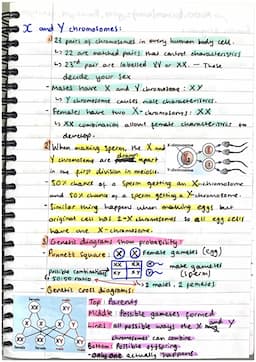 X and Y chromosomes:
1) 23 pairs of chromosomes in every human body cell.
↳ 22 are matched pairs that control characteristics
↳ 23rd pair are labelled XY or XX. - These
decide your sex
- Males have X and Y chromosome: XY
↳ Y chromosome causes male characteristics.
- Females have two X-chromosomes: XX
↳ XX combination allows female characteristics to
develop.
2) When making sperm, the X and
Y chromosome are drawn apart
in the first division in meiosis.
- 50% chance of a sperm getting an X-chromosome
and 50% chance a sperm getting a Y-chromosome.
- Similar thing happens when making eggs but
original cell has 2-X chromosomes so all egg cells
have one X-chromosome.
3) Genetic diagrams show probability:
- Punnett square: X X Female gametes (egg)
XX XX X
XY XY Y
male gametes
(sperm)
possible combinations
50:50 ratio
↳ 2 males, 2 females
- Genetic cross diagrams:
Top: Parents
Middle: Possible gametes formed
Lines: all possible ways the X and Y
chromosomes can combine
Bottom: Possible offspring.
- only one actually happens.